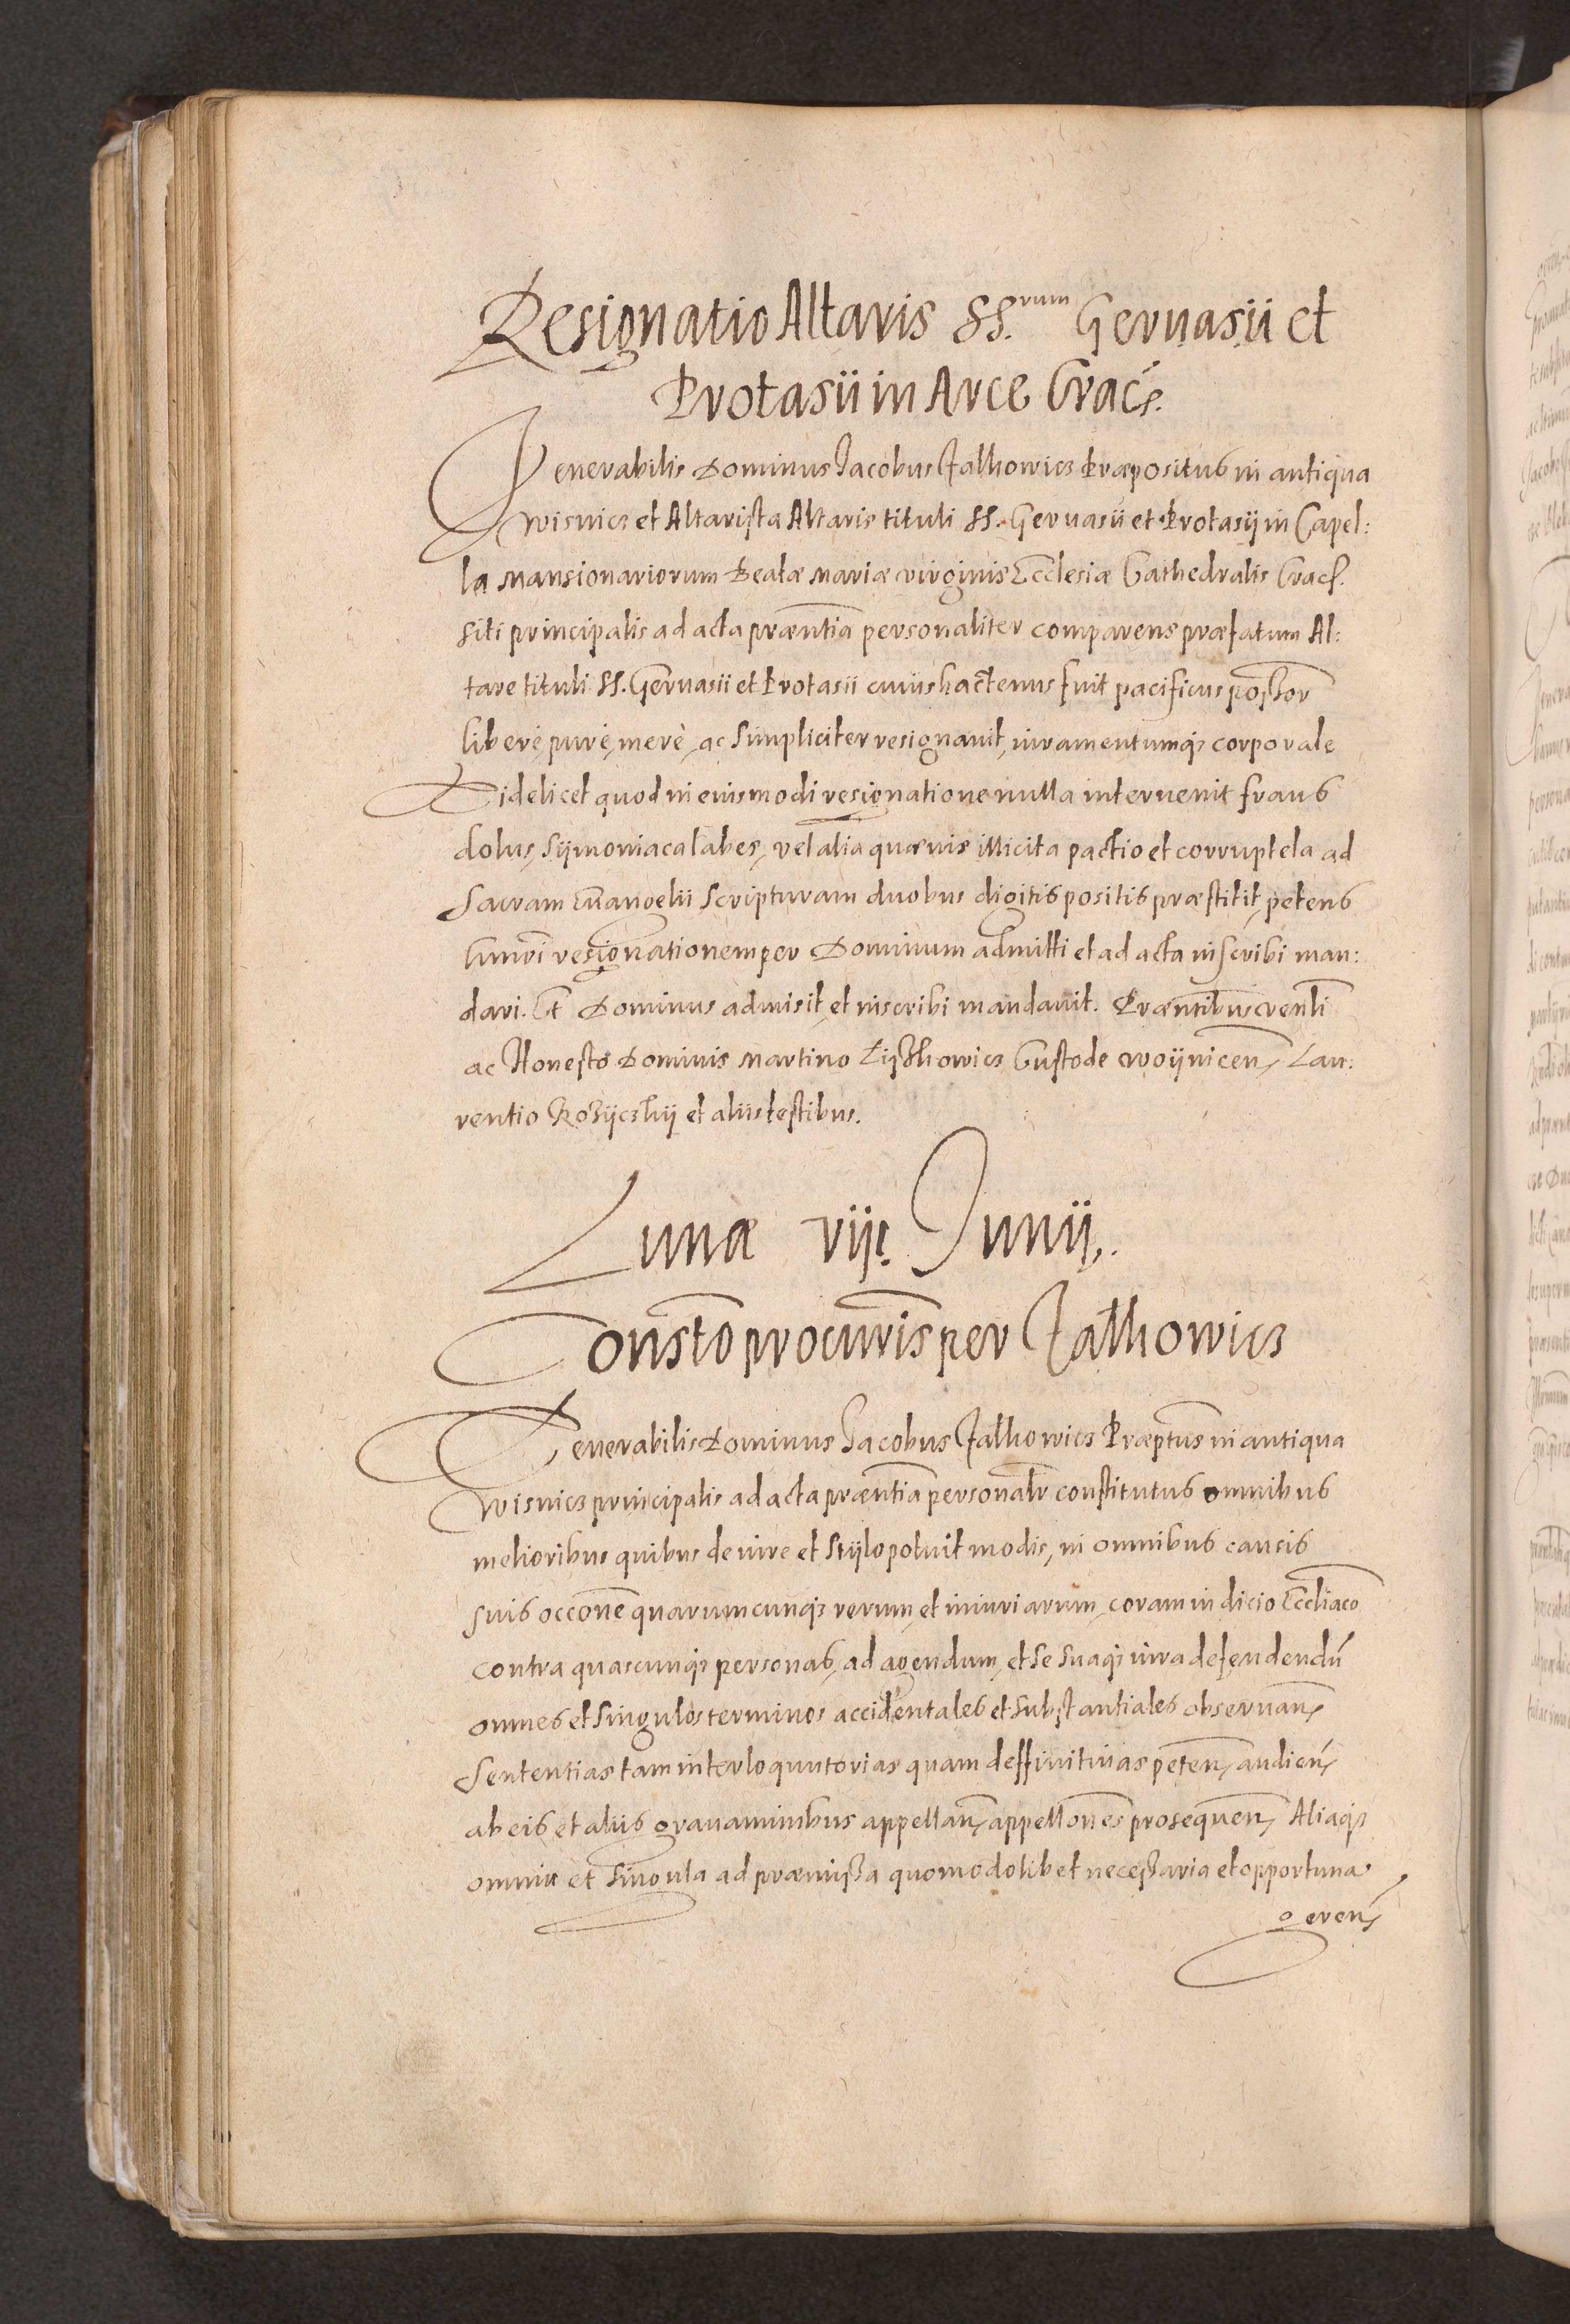 Resignatio Altaris SS.rum Geruasii et
Protasii in Arce Crac̄.
Venerabilis Dominus Jacobus Jalkowicz Præpositus in antiqua
Wisnicz et Altarista Altaris tituli SS. Geruasii et Protasij in Capel:
la Mansionariorum Beatæ Mariæ virginis Ecclesiæ Cathedralis Crac̄.
siti principalis ad acta præn̄tia personaliter comparens præfatum Al:
tare tituli SS. Geruasii et Protasii cuius hactenus fuit pacificus poss̄or
liberè, purè, merè, ac simpliciter resignauit, iuramentumq₃ corporale
Videlicet quod in eiusmodi resignatione nulla interuenit fraus
dolus, sijmoniaca labes, vel alia quæuis illicita pactio et corruptela ad
Sacram Euangelii Scripturam duobus digitis positis præstitit, petens
hmōi resignationem per Dominum admitti et ad acta inscribi man:
dari. Et Dominus admisit, et inscribi mandauit. Præn̄tibus ven̄li
ac Honesto Dominis Martino Liszkowicz Custode Woijnicen̄, Lau:
rentio Rożijczkij et aliis testibus.
Lunæ vij. Junij.
Constō procūris per Jalkowicz
Venerabilis Dominus Jacobus Jalkowicz Præptūs in antiqua
Wisnicz principalis ad acta præn̄tia personalr̄ constitutus omnibus
melioribus quibus de iure et stijlo potuit modis, in omnibus causis
suis occōne quarumcunq₃ rerum, et iniuriarum, coram iudicio Eccl̄iaco
contra quascunq₃ personas, ad agendum, et se suaq₃ iura defendendū
omnes et singulos terminos accidentales et substantiales obseruan̄,
Sententias tam interloquutorias quam deffinitiuas peten̄, audien̄,
ab eis et aliis grauaminibus appellan̄, appellōnes prosequen̄, Aliaq₃
omnia et singula ad præmissa quomodolibet necessaria et opportuna
geren̄